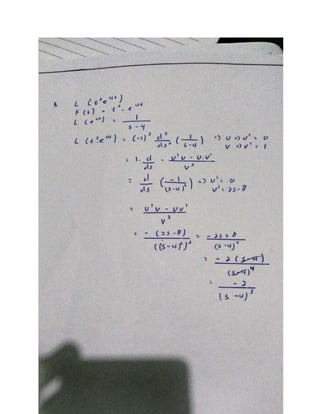 8. L (t²e⁴ᵗ)
F(t) = t² · e⁴ᵗ
L (e⁴ᵗ) = 1/(s-4)
L (t²e⁴ᵗ) = (-1)² d²/ds² (1/(s-4)) => u => u' = 0
v => v' = 1
= 1. d/ds . (u'v - u.v')/v²
= d/ds (-1/(s-4)²) => u' = 0
v' = 2s-8
= (u'v - uv')/v²
= -(2s-8)/((s-4)²)² = (-2s+8)/(s-4)⁴
= -2(s-4)/(s-4)⁴
= -2/(s-4)³